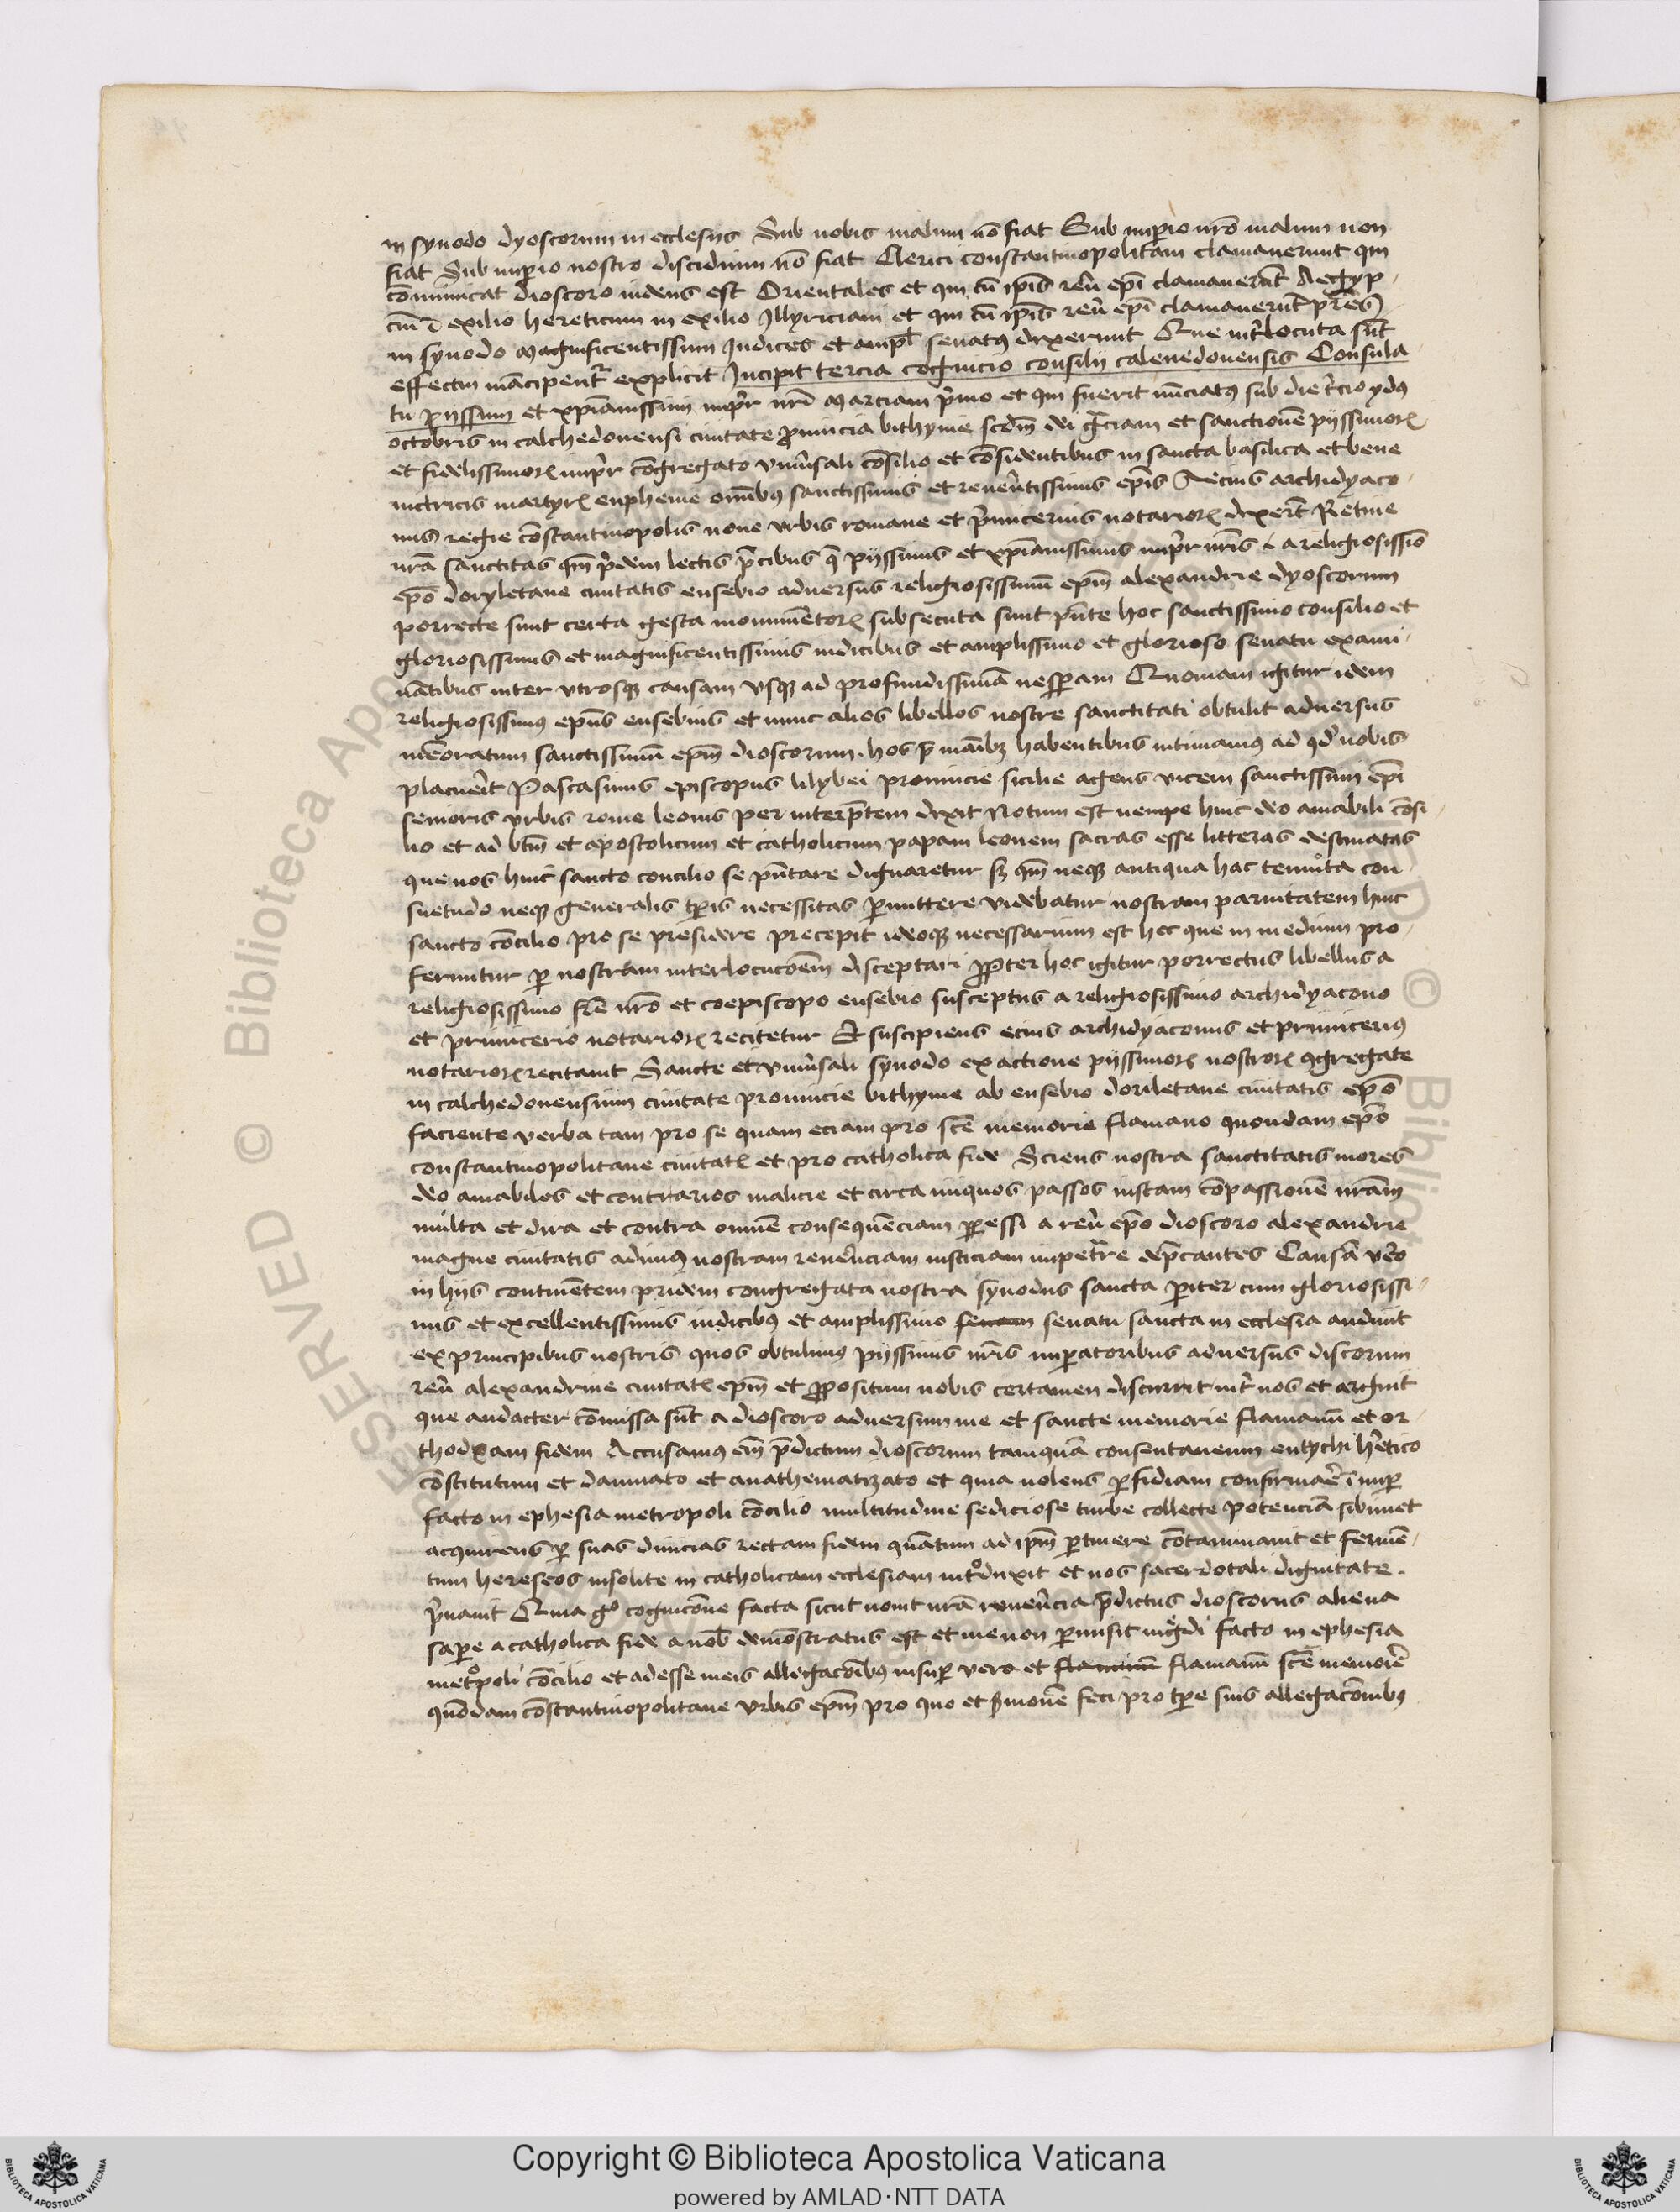 in synodo dyoscorum in ecclesijs Sub nobis malum nō fiat Sub imperio nr̄o malum non
fiat Sub imperio nostro discidium nō fiat Clerici constantinopolitani clamauerunt qui
cōmunicat dioscoro iudeus est Orientales et qui cū ip̄is reū ep̄i clamauerūt Aegyp-
cm̄ ī exilio hereticum in exilio Illyriciani et qui cū ip̄is reū ep̄i clamauerūt pr̄es
in synodo Magnificentissimi Iudices et ampl̄ senatꝰ dixerunt Que int̄locuta sūt
effectui mācipentʳ explicit Incipit tercia cognicio consilij calcedonensis Consula
tu pijssimi et xp̄ianissimi imp̄r nr̄i Marciani p̄mo et qui fuerit nūciatꝰ sub die t̄cio ydꝰ
octobris in calchedonensi ciuitate ꝓuincia bithynie scd̄m dei gr̄ciam et sanctionē pijssimoꝝ
et fidelissimoꝝ imp̄r cōgregato vniu̾sali cōsilio et cōsidentibus in sancta basilica et bene
uictricis martyrꝝ euphemie om̄ibꝰ sanctissimis et reuerētissimis ep̄is Aecius archidyaco-
nus regie cōstantinopolis noue vrbis romane et p̄micerius notarioꝝ dixer̄t Retine
nr̄a sanctitas qm̄ p̄dem lectis p̄cibus q̄ pijssimis et xp̄ianissimis imp̄r nr̄is a religiosissimo
ep̄o doryletane ciuitatis eusebio aduersus religiosissimū ep̄m alexandrie dyoscorum
porrecte sunt certa gesta monumētoꝝ subsecuta sunt pn̄te hoc sanctissimo consilio et
gloriosissimis et magnificentissimis iudicibus et amplissimo et glorioso senatu exami-
nātibus inter vtrosqꝫ causam vsqꝫ ad profundissimā uesp̱eram Quoniam igitur idem
religiosissimꝰ ep̄us eusebius et nunc alios libellos nostre sanctitati obtulit aduersus
memoratum sanctissimū ep̄m dioscorum. hos p̄ manibꝫ habentibus intimamꝰ ad qd̄ nobis
placuerit Pascasinus episcopus lilybei prouincie sicilie agens vicem sanctissimi ep̄i
senioris vrbis rome leonis per interp̄tem dixit Notum est nempe huic deo amabili cōsi-
lio et ad bt̄m et apostolicum et catholicum papam leonem sacras esse litteras destinatas
que nos huic sancto concilio se pn̄tare dignaretur sꝫ qm̄ neqꝫ antiqua hac tenuita con-
suetudo neqꝫ generalis tp̄is necessitas ꝑmittere videbatur nostram paruitatem huic
sancto cōcilio pro se presidere precepit ideoqꝫ necessarium est hec que in medium pro-
feruntur ꝑ nostram interlocucōem disceptari ꝓpter hoc igitur porrectus libellus a
religiosissimo fr̄e nr̄o et coepiscopo eusebio susceptus a religiosissimo archidyacono
et primicerio notarioꝝ recitetur Et suscipiens ecius archidyaconus et primiceriꝰ
notarioꝝ recitauit Sancte et vniu̾sali synodo ex actione pijssimoꝝ nostroꝝ ꝯgregate
in calchedonensium ciuitate prouincie bithynie ab eusebio doriletane ciuitatis ep̄o
faciente verba tam pro se quam eciam pro sc̄e memorie flamano quondam ep̄o
constantinopolitane ciuitatꝭ et pro catholica fide Sciens nostra sanctitatis mores
deo amabiles et contrarios malicie et circa iniquos passos iustam cōpassionē nr̄am
multa et dira et contra omnē consequēciam ꝑpessi a reū ep̄o dioscoro alexandrie
magne ciuitatis adimꝰ nostram reuerēciam iusticiam impetrare dep̄cantes Causā vero
in hijs continētem pridem congregata nostra synodus sancta ꝑiter cum gloriosissi-
mis et excellentissimis iudicibꝰ et amplissimo senatu sancta in ecclesia audiuit
ex principibus nostris quos obtulimꝰ pijssimis nr̄is imperatoribus aduersus discorum
reū alexandrine ciuitatꝭ ep̄m et ꝓpositum nobis certamen discurrit int̄ nos et arguit
que audacter cōmissa sūt a dioscoro aduersum me et sancte memorie flamanū et or-
thodxam fidem Accusamꝰ em̄ p̄dictum dioscorum tamquā consentaneum eutychi h̄etico
cōstitutum et damnato et anathematizato et quia uolens ꝑfidiam confirmare ī nuꝑ
facto in ephesia metropoli cōcilio multitudine sediciose turbe collecte potenciā sibimet
acquirens ꝑ suas diuicias rectam fidem quātum ad ip̄m ꝑtinere cōtaminauit et fermē-
tum hereseos insolite in catholicam ecclesiam introduxit et nos sacerdotali dignitate.
p̄uauit Quia gͦ cognicōne facta sicut nouit nr̄a reuerēcia p̄dictus dioscorus aliena
saꝑe a catholica fide a nob̄ demōstratus est et me non ꝑmisit ingͣdi facto in ephesia
metͦpoli cōcilio et adesse meis allegacōibꝰ insuꝑ vero et flamanū sc̄e memorie
quōdam cōstantinopolitane vrbis ep̄m pro quo et ẜmonē feci pro tꝑe suis allegacōnibꝰ
Copyright © Biblioteca Apostolica Vaticana
powered by AMLAD·NTT DATA